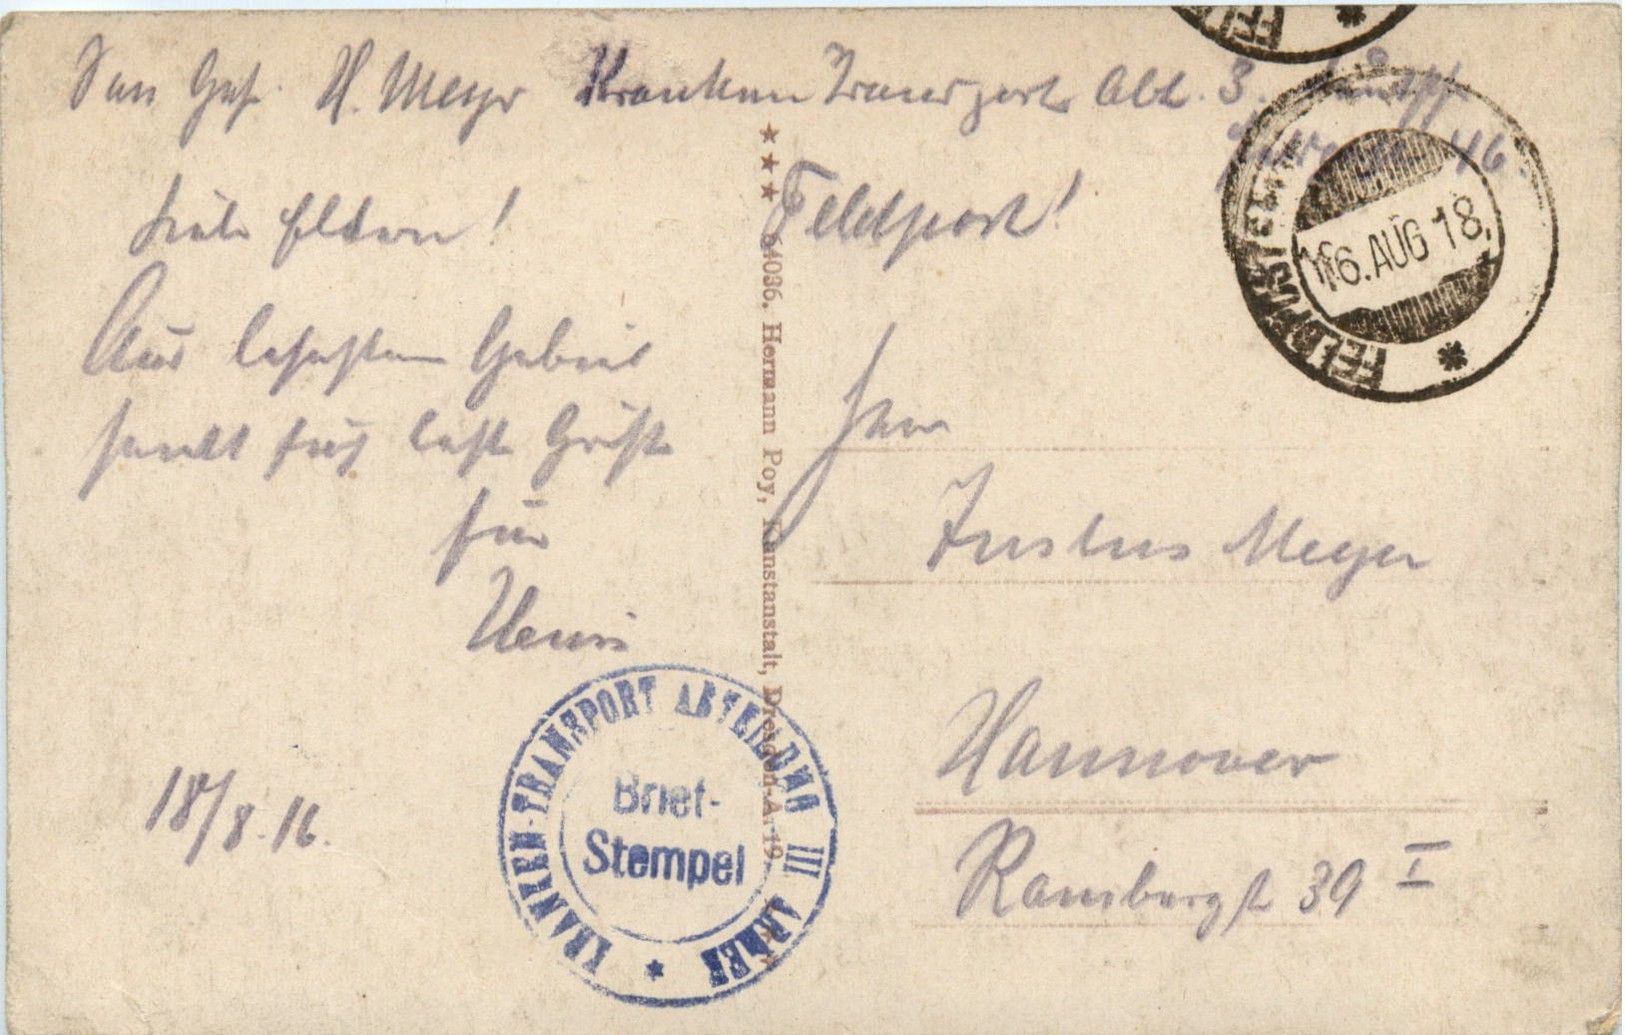 San Gef. H. Meyer Kranken Transport Abt. 3.
46.
Feldpost!
Liebe Eltern!
Aus besetztem Gebiet
sendet Euch beste Grüße
Euer
Henri
18/8.16.
Herrn
Justus Meyer
Hannover
Rambergst 39 I
★★★ 64036. Hermann Poy, Kunstanstalt, Dresden-A. 19. ★★★
KRANKEN-TRANSPORT ABTEILUNG III ARMEE
Brief-
Stempel
16. AUG 18.